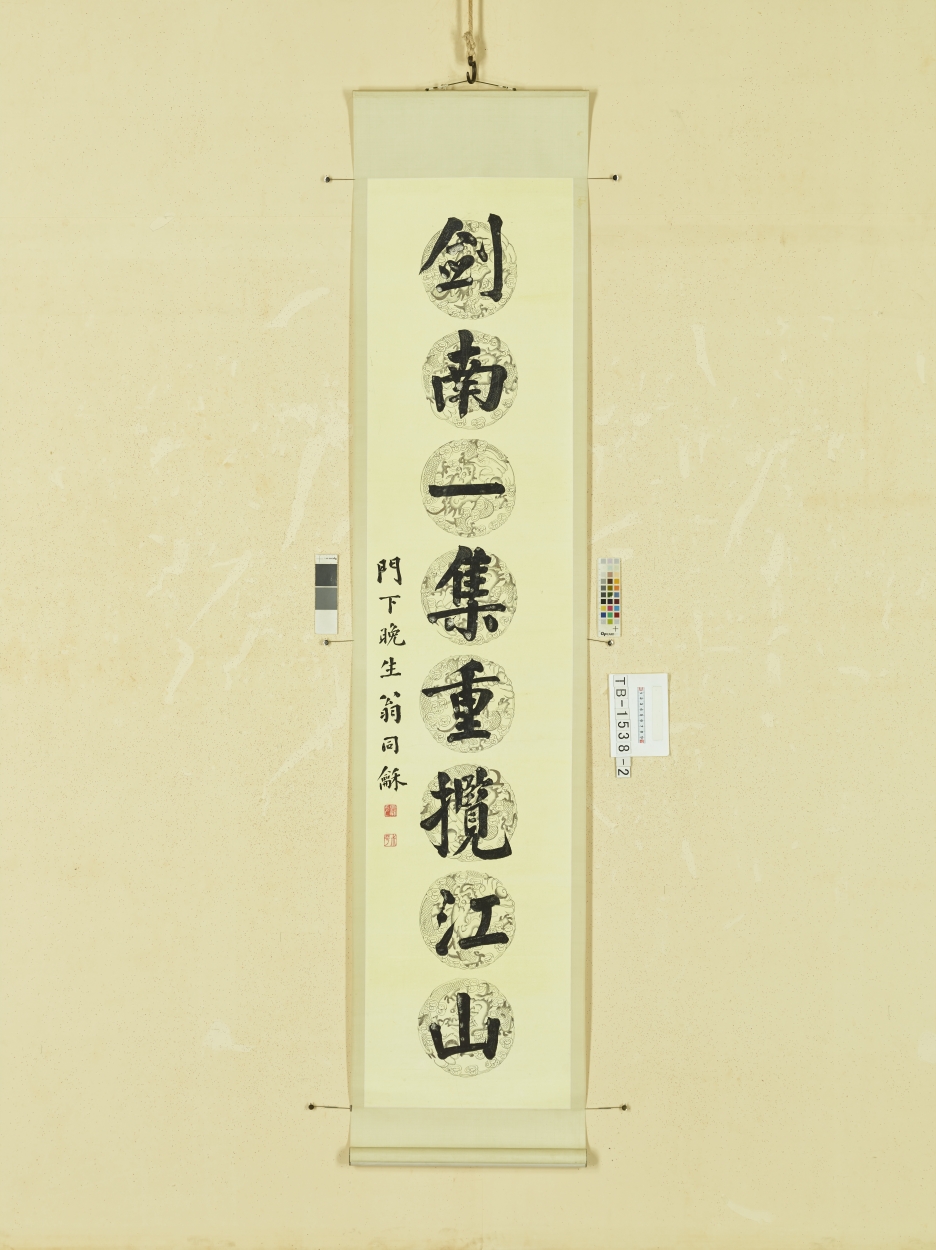 剑南一集重攬江山
門下晚生翁同龢
TB-1538-2